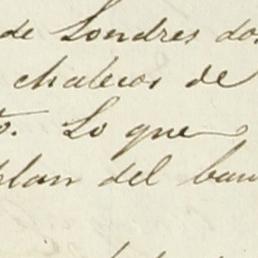 de Londres dos
chalecos de
Lo que
plan del bau